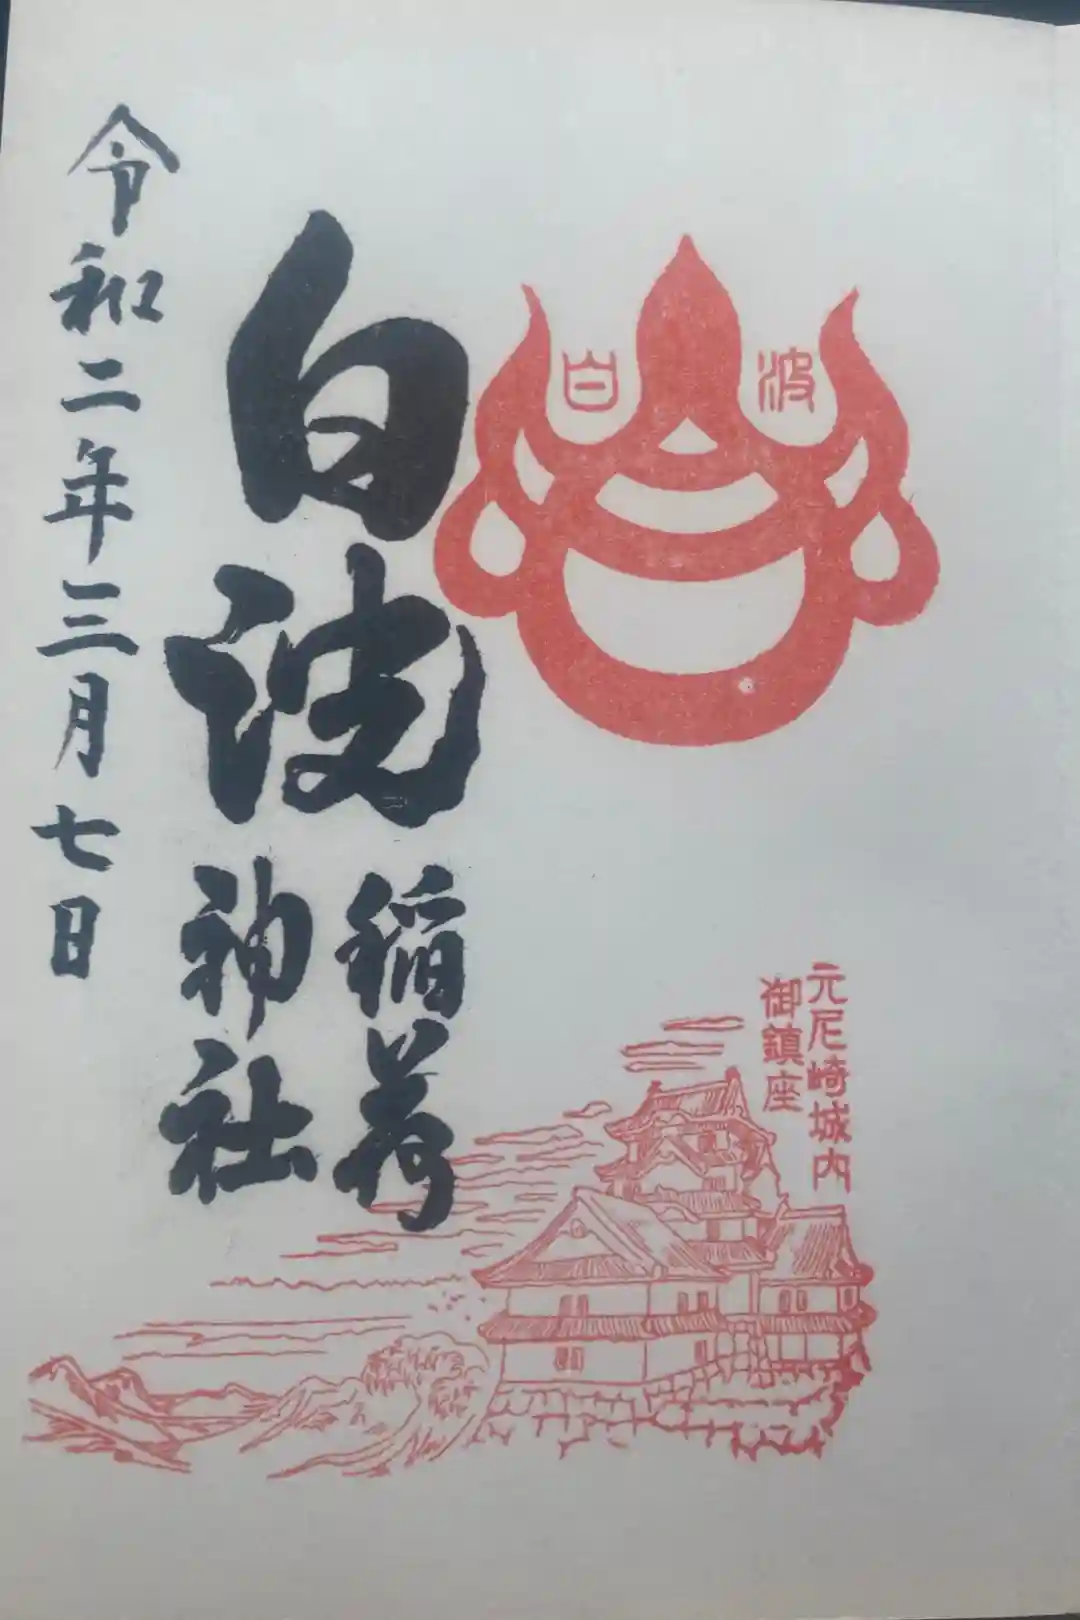 白
波
元尼崎城内
御鎮座
白波
稲荷
神社
令和二年三月七日